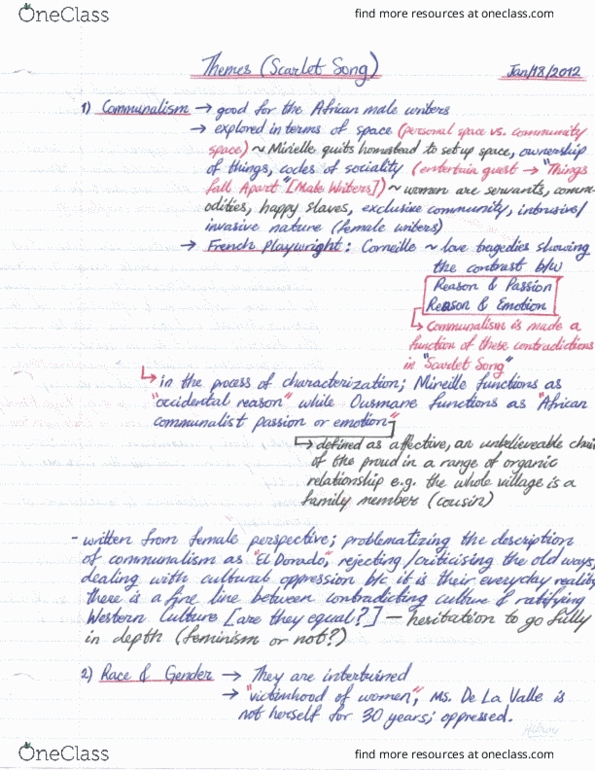 OneClass
find more resources at oneclass.com
Themes (Scarlet Song)
Jan/18/2012
1) Communalism → good for the African male writers
→ explored in terms of space (personal space vs. community
space) ~ Mirielle quits homestead to set up space, ownership
of things, codes of sociality (entertain guest → "Things
fall Apart" [Male Writers]) ~ women are servants, comm-
odities, happy slaves, exclusive community, intrusive/
invasive nature (female writers)
→ French Playwright: Corneille ~ love tragedies showing
the contrast b/w
Reason & Passion
Reason & Emotion
↳ Communalism is made a
function of these contradictions
in "Scarlet Song"
↳ in the process of characterization; Mireille functions as
"occidental reason" while Ousmane functions as "African
communalist passion or emotion"
↳ defined as affective, an unbelieveable
of the proud in a range of organic
relationship e.g. the whole village is a
family member (cousin)
- written from female perspective; problematizing the description
of communalism as "El Dorado", rejecting/criticising the old ways,
dealing with cultural oppression b/c it is their everyday reality
there is a fine line between contradicting culture & ratifying
Western Culture [are they equal?] — hesitation to go fully
in depth (feminism or not?)
2) Race & Gender → They are intertwined
→ "victimhood of women", Ms. De La Valle is
not herself for 30 years; oppressed.
OneClass
find more resources at oneclass.com